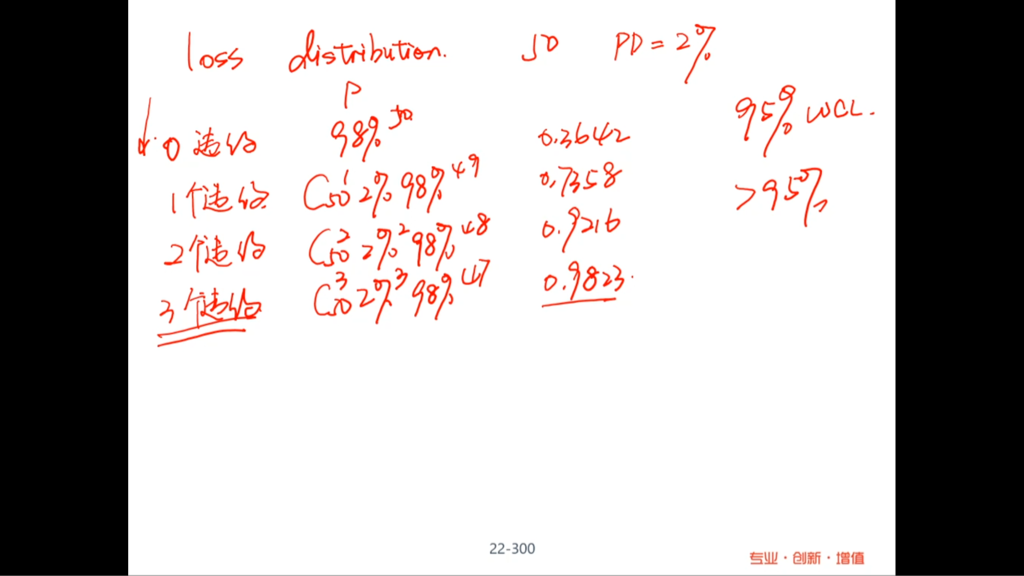 loss distribution. 50 PD = 2%
P
0 违约 98%^50 0.3642 95% WCL.
1个违约 C50^1 2% 98%^49 0.7358 >95%
2个违约 C50^2 2%^2 98%^48 0.9216
3个违约 C50^3 2%^3 98%^47 0.9823.
22-300
专业·创新·增值